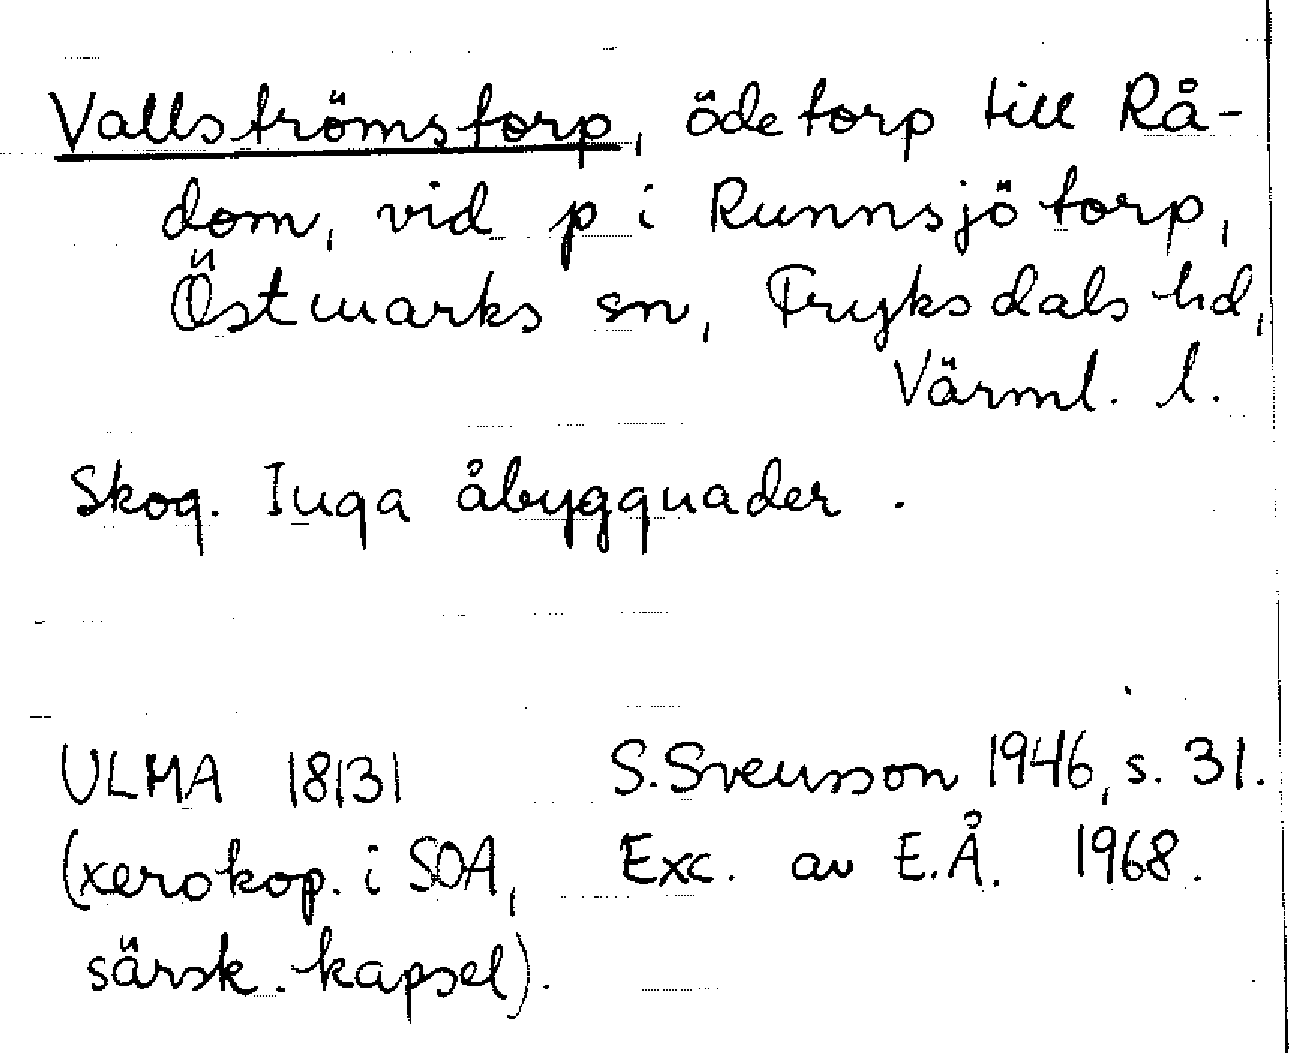 Vallströmstorp, ödetorp till Rå-
dom, vid p i Runnsjötorp,
Östmarks sn, Fryksdals hd,
Värml. l.
Skog. Inga åbyggnader.
ULMA 18131 S. Svensson 1946, s. 31.
(xerokop. i SOA, Exc. av E.Å. 1968.
särsk. kapsel).